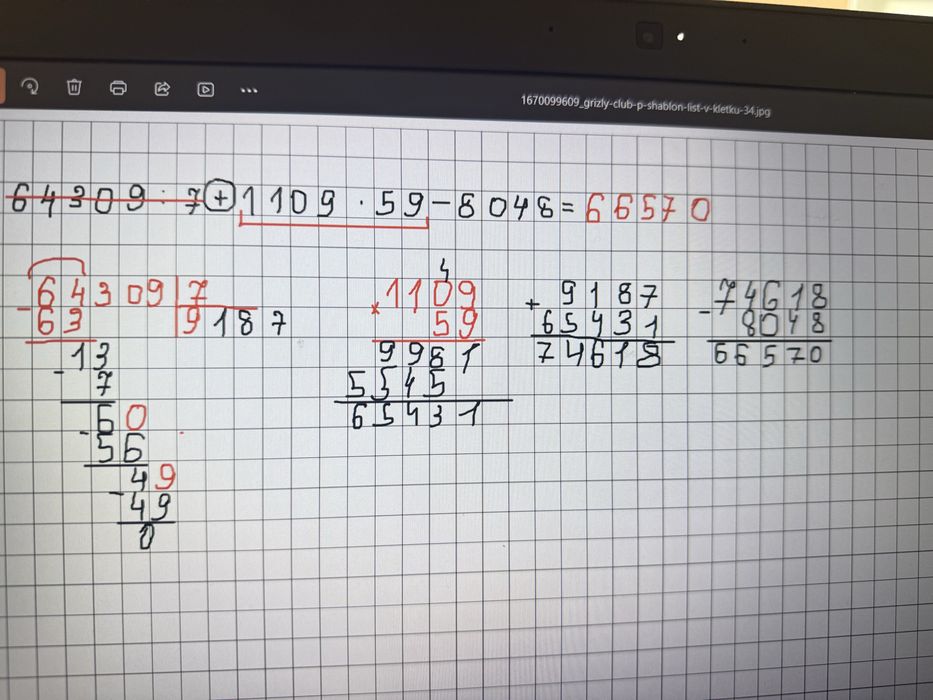 1670099609_grizly-club-p-shablon-list-v-kletku-34.jpg
64309 : 7 + 1109 · 59 - 8048 = 66570
64309 | 7
- 63 | 9187
13
- 7
60
- 56
49
- 49
0
4
1109
× 59
9981
5545
65431
+ 9187
65431
74618
- 74618
8048
66570